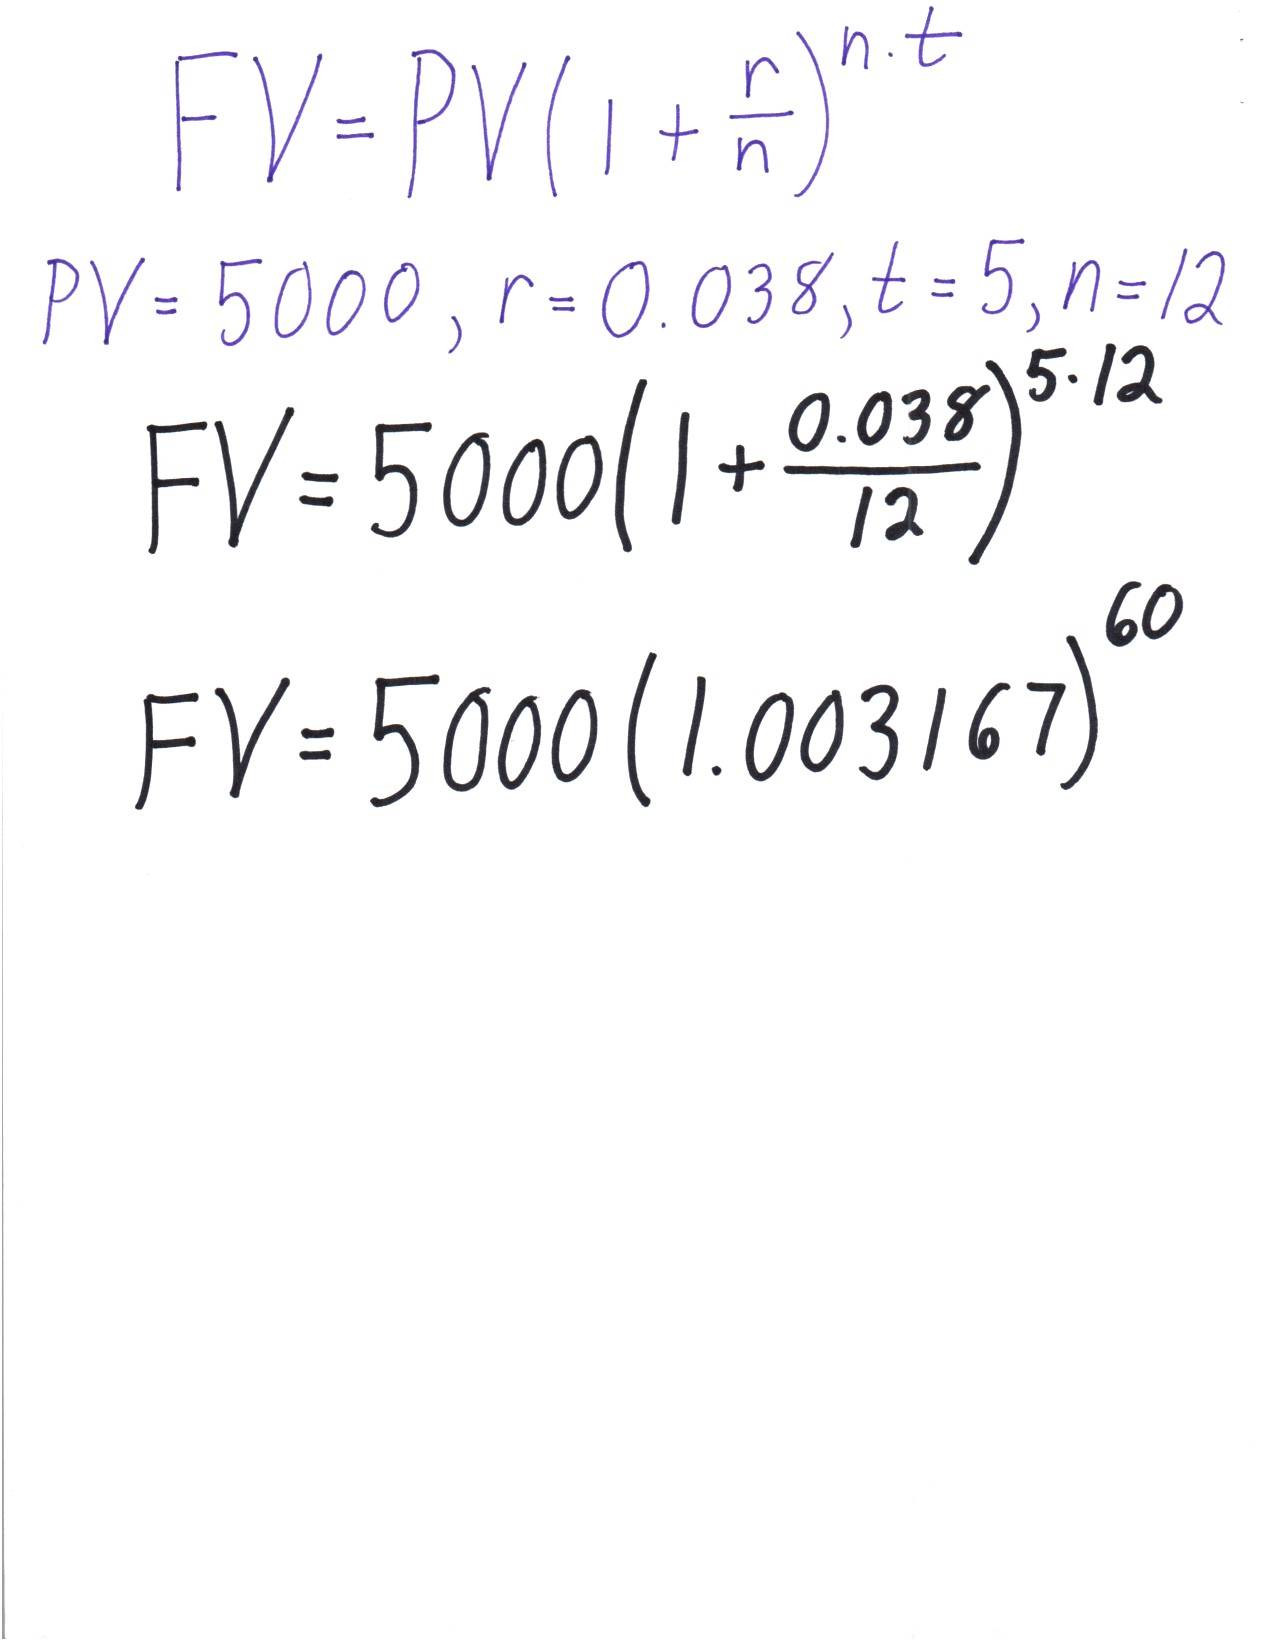 FV = PV(1 + r/n)^n·t
PV = 5000, r = 0.038, t = 5, n = 12
FV = 5000(1 + 0.038/12)^5·12
FV = 5000(1.003167)^60